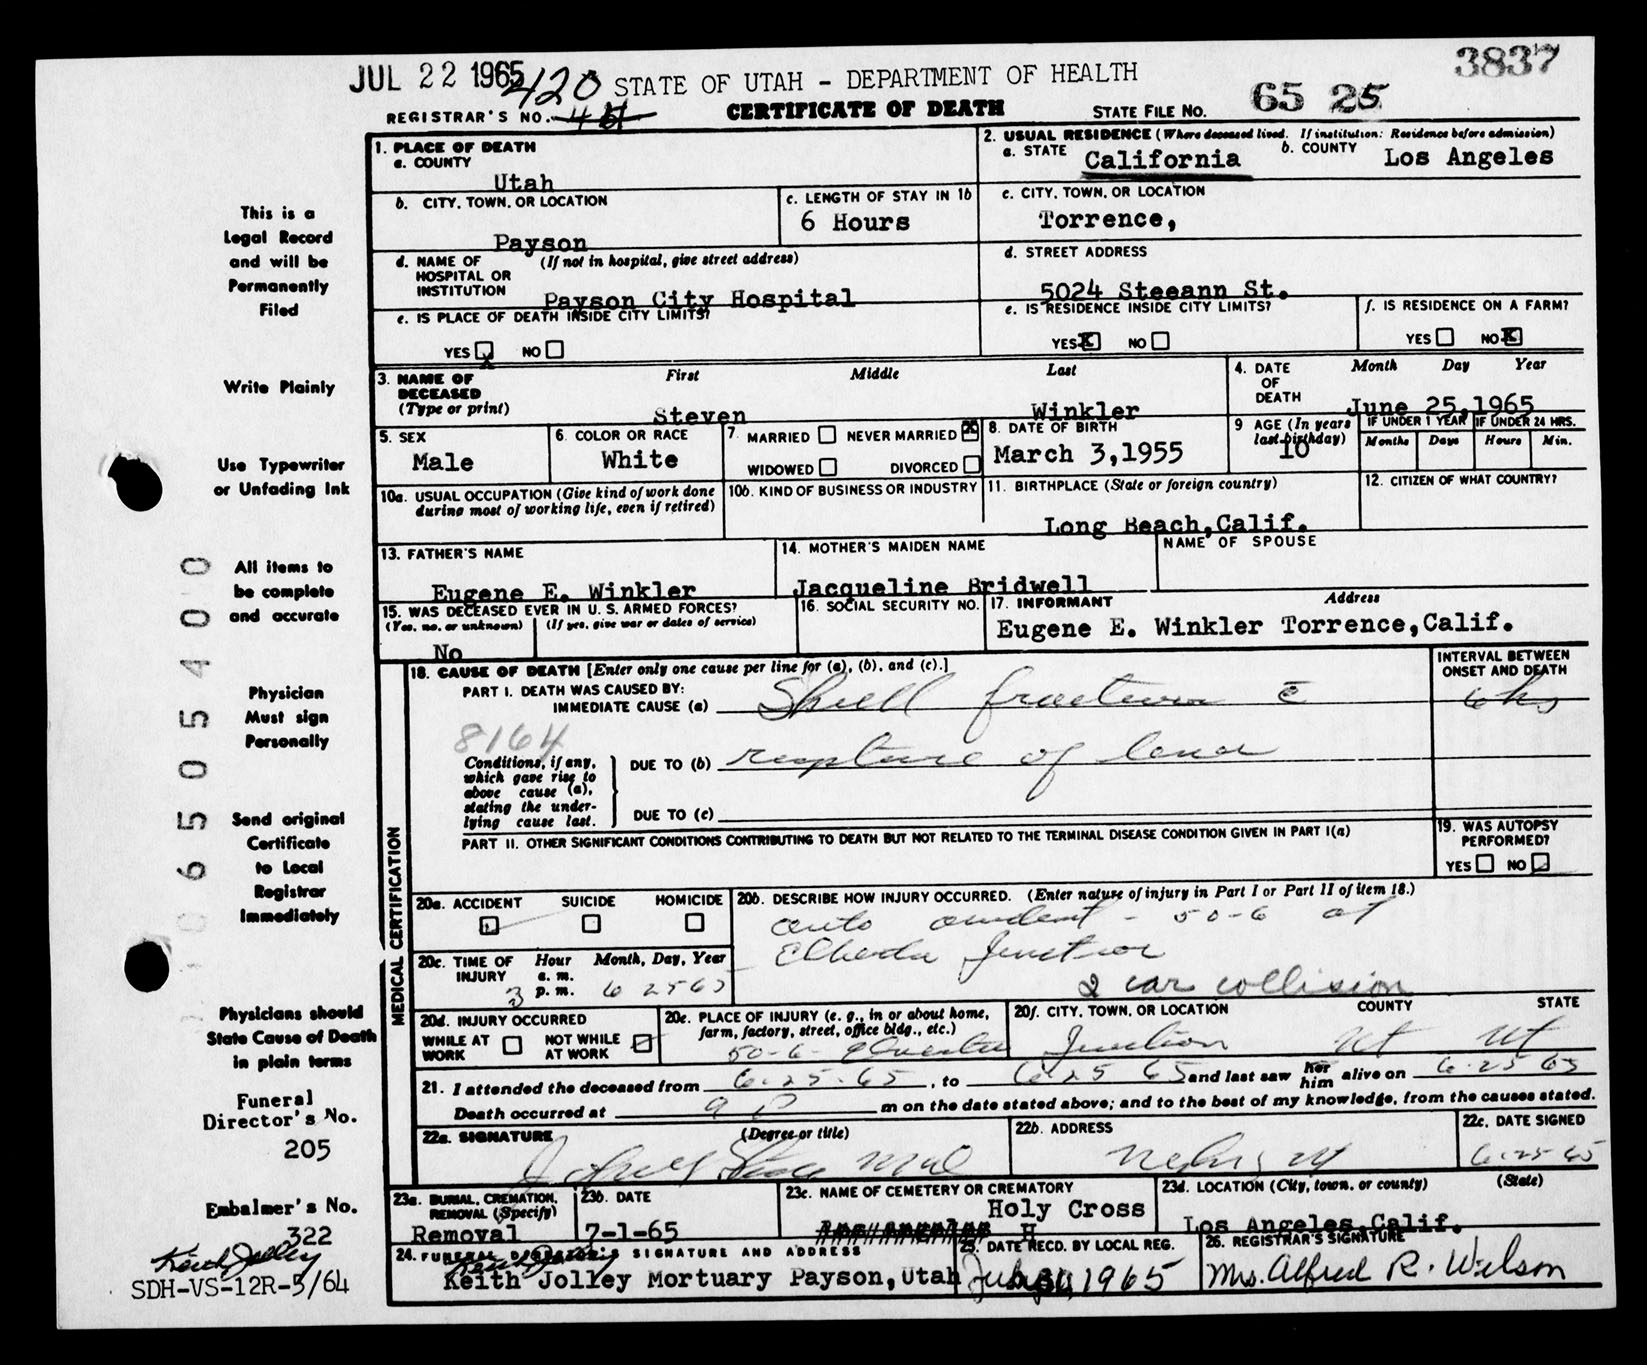 JUL 22 1965
3837
STATE OF UTAH - DEPARTMENT OF HEALTH
REGISTRAR'S NO. 420
CERTIFICATE OF DEATH
STATE FILE NO. 65 25
1. PLACE OF DEATH
a. COUNTY
Utah
2. USUAL RESIDENCE (Where deceased lived. If institution: Residence before admission)
a. STATE California b. COUNTY Los Angeles
b. CITY, TOWN, OR LOCATION
Payson
c. LENGTH OF STAY IN 1b
6 Hours
c. CITY, TOWN, OR LOCATION
Torrence,
d. NAME OF HOSPITAL OR INSTITUTION (If not in hospital, give street address)
Payson City Hospital
d. STREET ADDRESS
5024 Steeann St.
e. IS PLACE OF DEATH INSIDE CITY LIMITS?
YES X NO
e. IS RESIDENCE INSIDE CITY LIMITS?
YES X NO
f. IS RESIDENCE ON A FARM?
YES NO X
3. NAME OF DECEASED (Type or print)
First Middle Last
Steven Winkler
4. DATE OF DEATH Month Day Year
June 25,1965
5. SEX
Male
6. COLOR OR RACE
White
7. MARRIED NEVER MARRIED X
WIDOWED DIVORCED
8. DATE OF BIRTH
March 3,1955
9 AGE (In years last birthday)
10
IF UNDER 1 YEAR IF UNDER 24 HRS.
Months Days Hours Min.
10a. USUAL OCCUPATION (Give kind of work done during most of working life, even if retired)
10b. KIND OF BUSINESS OR INDUSTRY
11. BIRTHPLACE (State or foreign country)
Long Beach,Calif.
12. CITIZEN OF WHAT COUNTRY?
13. FATHER'S NAME
Eugene E. Winkler
14. MOTHER'S MAIDEN NAME
Jacqueline Bridwell
NAME OF SPOUSE
15. WAS DECEASED EVER IN U. S. ARMED FORCES?
(Yes, no, or unknown) (If yes, give war or dates of service)
No
16. SOCIAL SECURITY NO.
17. INFORMANT Address
Eugene E. Winkler Torrence,Calif.
MEDICAL CERTIFICATION
18. CAUSE OF DEATH [Enter only one cause per line for (a), (b), and (c).]
INTERVAL BETWEEN ONSET AND DEATH
PART I. DEATH WAS CAUSED BY:
IMMEDIATE CAUSE (a) Skull fracture c̄
6 hrs
8164
Conditions, if any, which gave rise to above cause (a), stating the underlying cause last.
DUE TO (b) rupture of
DUE TO (c)
PART II. OTHER SIGNIFICANT CONDITIONS CONTRIBUTING TO DEATH BUT NOT RELATED TO THE TERMINAL DISEASE CONDITION GIVEN IN PART I(a)
19. WAS AUTOPSY PERFORMED?
YES NO
20a. ACCIDENT SUICIDE HOMICIDE
20b. DESCRIBE HOW INJURY OCCURRED. (Enter nature of injury in Part I or Part II of item 18.)
auto accident - 50-6 at
Elberta Junction
2 car collision
20c. TIME OF INJURY Hour a. m. p. m. Month, Day, Year
3 6 25 65
20d. INJURY OCCURRED
WHILE AT WORK NOT WHILE AT WORK
20e. PLACE OF INJURY (e. g., in or about home, farm, factory, street, office bldg., etc.)
50-6- Elberta
20f. CITY, TOWN, OR LOCATION COUNTY STATE
Junction Ut Ut
21. I attended the deceased from 6-25-65, to 6-25 65 and last saw her him alive on 6-25 65
Death occurred at 9 P m on the date stated above; and to the best of my knowledge, from the causes stated.
22a. SIGNATURE (Degree or title)
22b. ADDRESS
22c. DATE SIGNED
6-25 65
23a. BURIAL, CREMATION, REMOVAL (Specify)
Removal
23b. DATE
7-1-65
23c. NAME OF CEMETERY OR CREMATORY
Holy Cross
23d. LOCATION (City, town, or county) (State)
Los Angeles,Calif.
24. FUNERAL DIRECTOR'S SIGNATURE AND ADDRESS
Keith Jolley
Keith Jolley Mortuary Payson,Utah
25. DATE RECD. BY LOCAL REG.
1965
26. REGISTRAR'S SIGNATURE
Mrs. Alfred R. Wilson
This is a
Legal Record
and will be
Permanently
Filed
Write Plainly
Use Typewriter
or Unfading Ink
All items to
be complete
and accurate
Physician
Must sign
Personally
Send original
Certificate
to Local
Registrar
Immediately
Physicians should
State Cause of Death
in plain terms
Funeral
Director's No.
205
Embalmer's No.
322
Keith Jolley
SDH-VS-12R-5/64